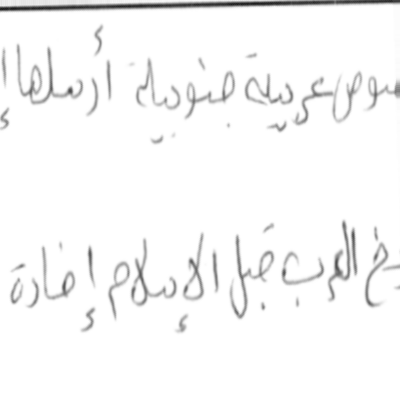 صوص عربية جنوبية أرسلها إ
يخ العرب قبل الإسلام إضادة